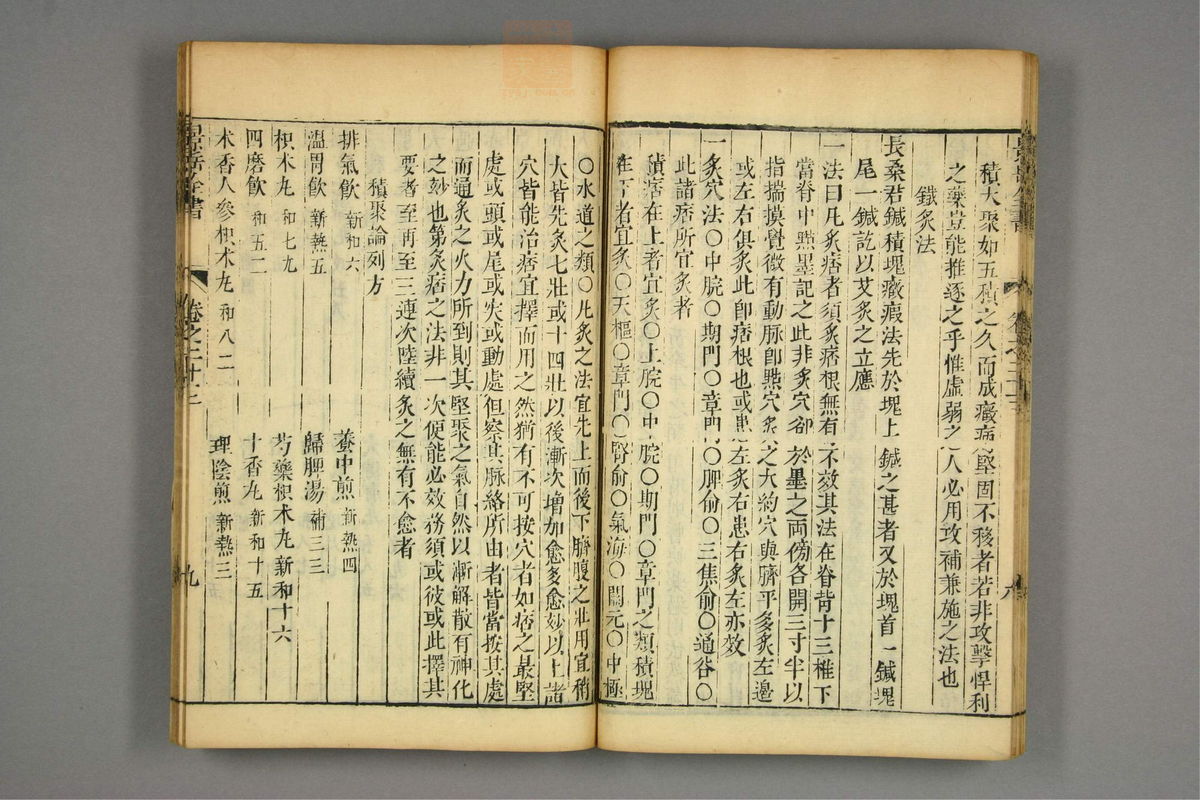 積大聚如五積之久而成癥病堅固不移者若非攻擊悍利
之藥豈能推逐之乎惟虛弱之人必用攻補兼施之法也
鍼灸法
長桑君鍼積塊癥瘕法先於塊上鍼之甚者又於塊首一鍼塊
尾一鍼訖以艾灸之立應
一法曰凡灸痞者須灸痞根無有不效其法在脊背十三椎下
當脊中點墨記之此非灸穴卻於墨之兩傍各開三寸半以
指揣摸覺微有動脉卽點穴灸之大約穴與臍平多灸左邊
或左右俱灸此卽痞根也或患左灸右患右灸左亦效
一灸穴法〇中脘〇期門〇章門〇脾俞〇三焦俞〇通谷〇
此諸痞所宜灸者
積痞在上者宜灸〇上脘〇中脘〇期門〇章門之類積塊
在下者宜灸〇天樞〇章門〇腎俞〇氣海〇關元〇中極
〇水道之類〇凡灸之法宜先上而後下臍腹之壯用宜稍
大皆先灸七壯或十四壯以後漸次增加愈多愈妙以上諸
穴皆能治痞宜擇而用之然猶有不可按穴者如痞之最堅
處或頭或尾或突或動處但察其脉絡所由者皆當按其處
而通灸之火力所到則其堅聚之氣自然以漸解散有神化
之妙也第灸痞之法非一次便能必效務須或彼或此擇其
要者至再至三連次陸續灸之無有不愈者
積聚論列方
排氣飲 新和六 養中煎 新熱四
溫胃飲 新熱五 歸脾湯 補三三
枳术丸 和七九 芍藥枳术丸 新和十六
四磨飲 和五二 十香丸 新和十五
木香人參枳术丸 和八二 理陰煎 新熱三
景岳全書 卷之二十三 九